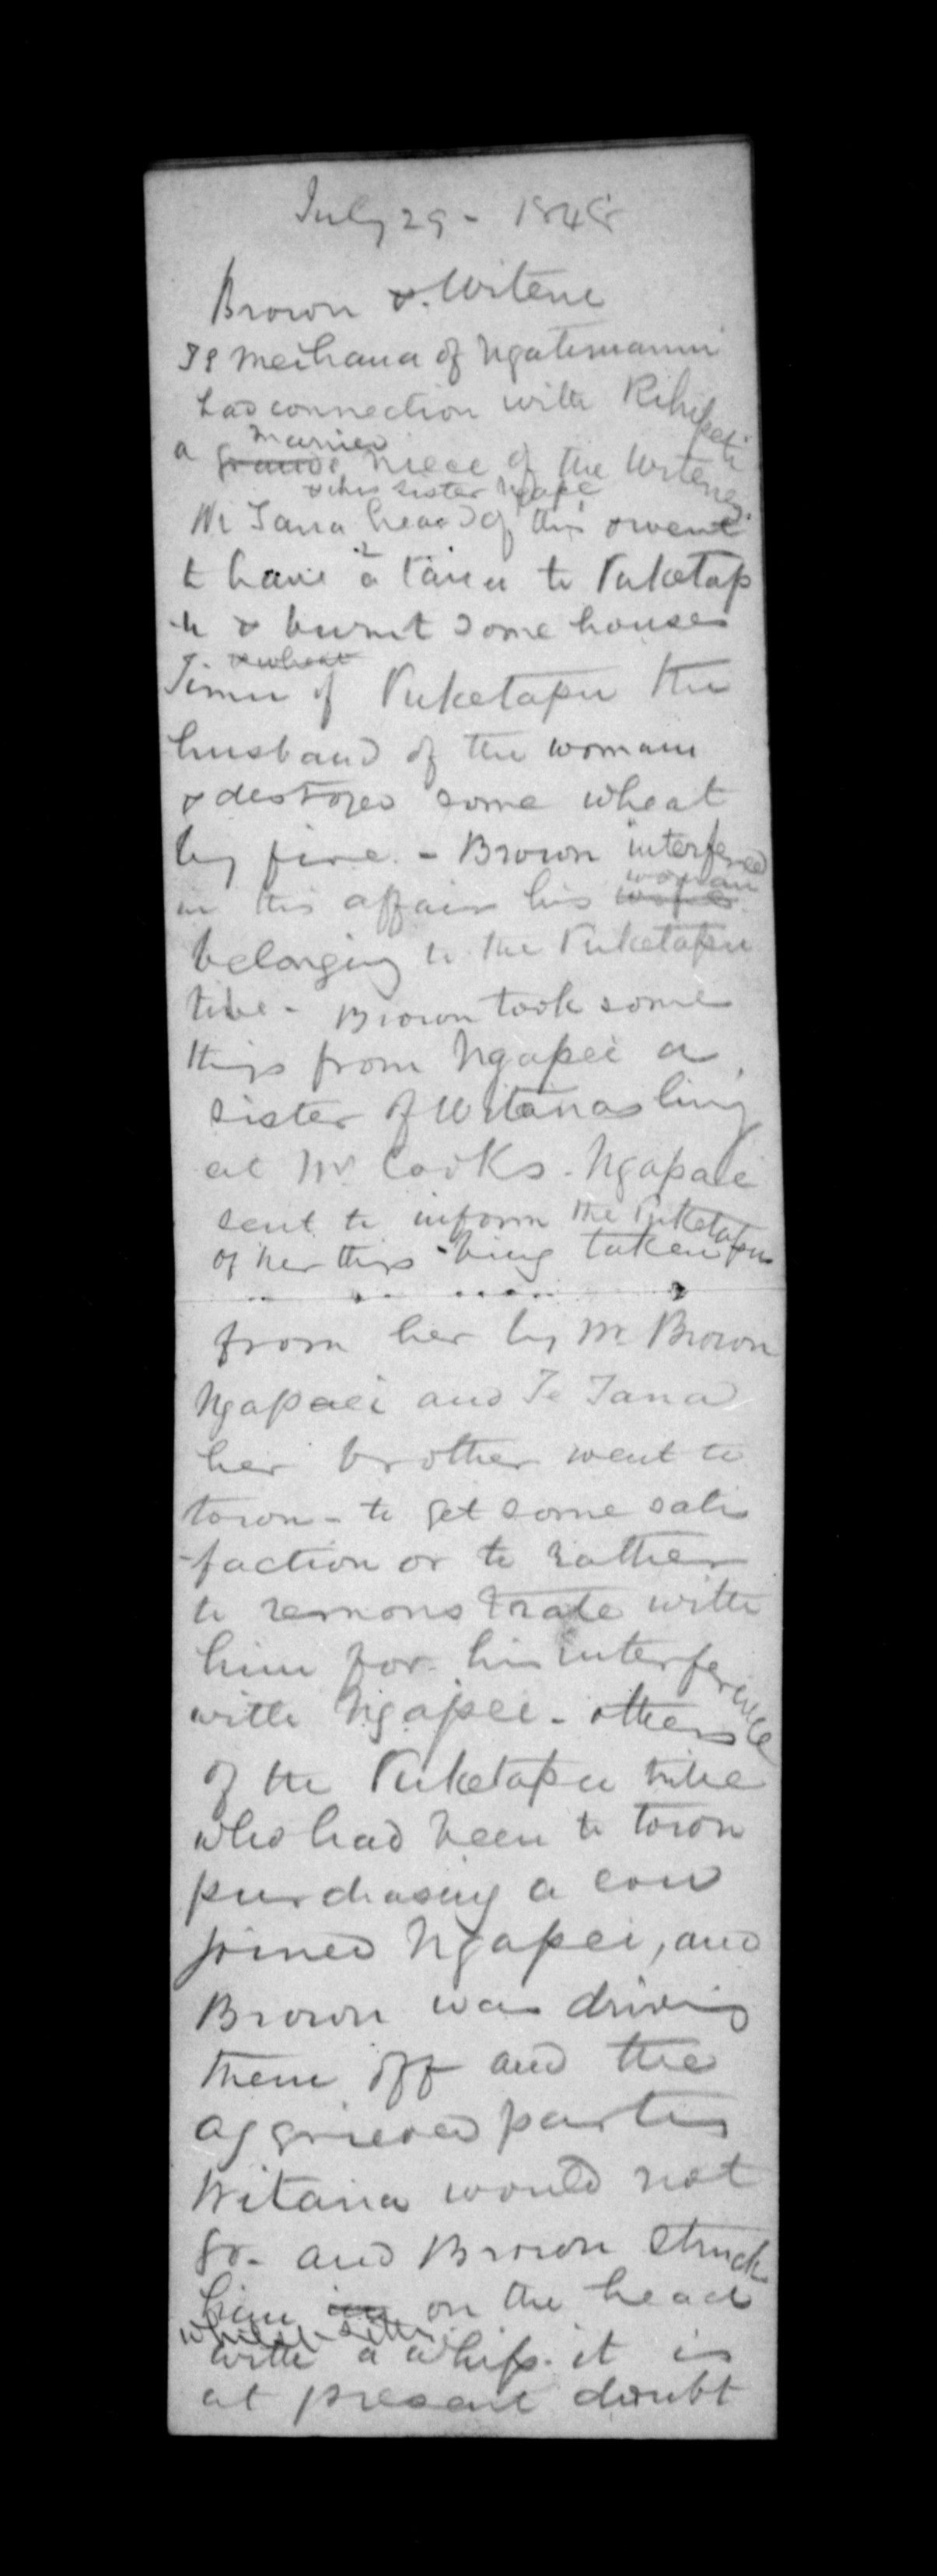 July 29 - 1848
Brown & Witene
Te Meihana of Ngatimanui
had connection with Rihipeti
married
a niece of the Witenes
& his sister Ngape
Wi Tana head of this & went
to have a taua to Puketap
-u & burnt some houses
& wheat
Timu of Puketapu the
husband of the woman
& destroyed some wheat
by fire. - Brown interfered
woman
in this affair his
belonging to the Puketapu
tribe - Brown took some
things from Ngapei a
sister of Witanas living
at Mr Cooks. Ngapaei
sent to inform the Puketapu
of her things being taken
from her by Mr Brown
Ngapaei and Te Tana
her brother went to
town - to get some satis
-faction or to rather
to remonstrate with
him for his interference
with Ngapei - others
of the Puketapu tribe
who had been to town
purchasing a cow
joined Ngapei, and
Brown was driving
them off and the
aggrieved party
Witana would not
go - and Brown struck
him on the head
whilst sitting
with a whip. it is
at present doubt